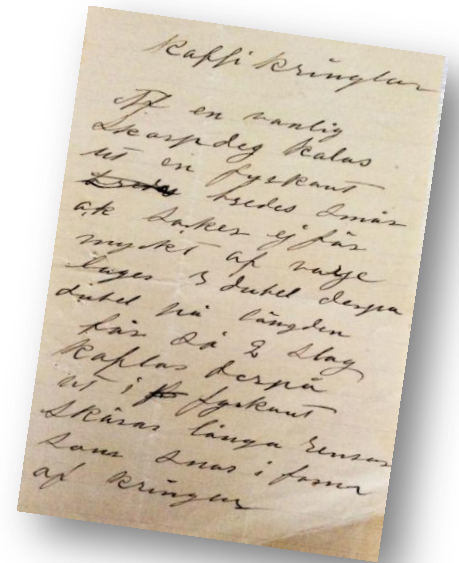 Kaffi kringlar
Af en vanlig
skarpdeg kalas
ut en fyrkant
bredes smör
ok socker ej för
mycket af varje
lages 3 dubel derpå
dubel på längden
får så 2 slag
Kaflas derpå
ut i fyrkant
skäras långa remsor
som snos i form
af kringlor